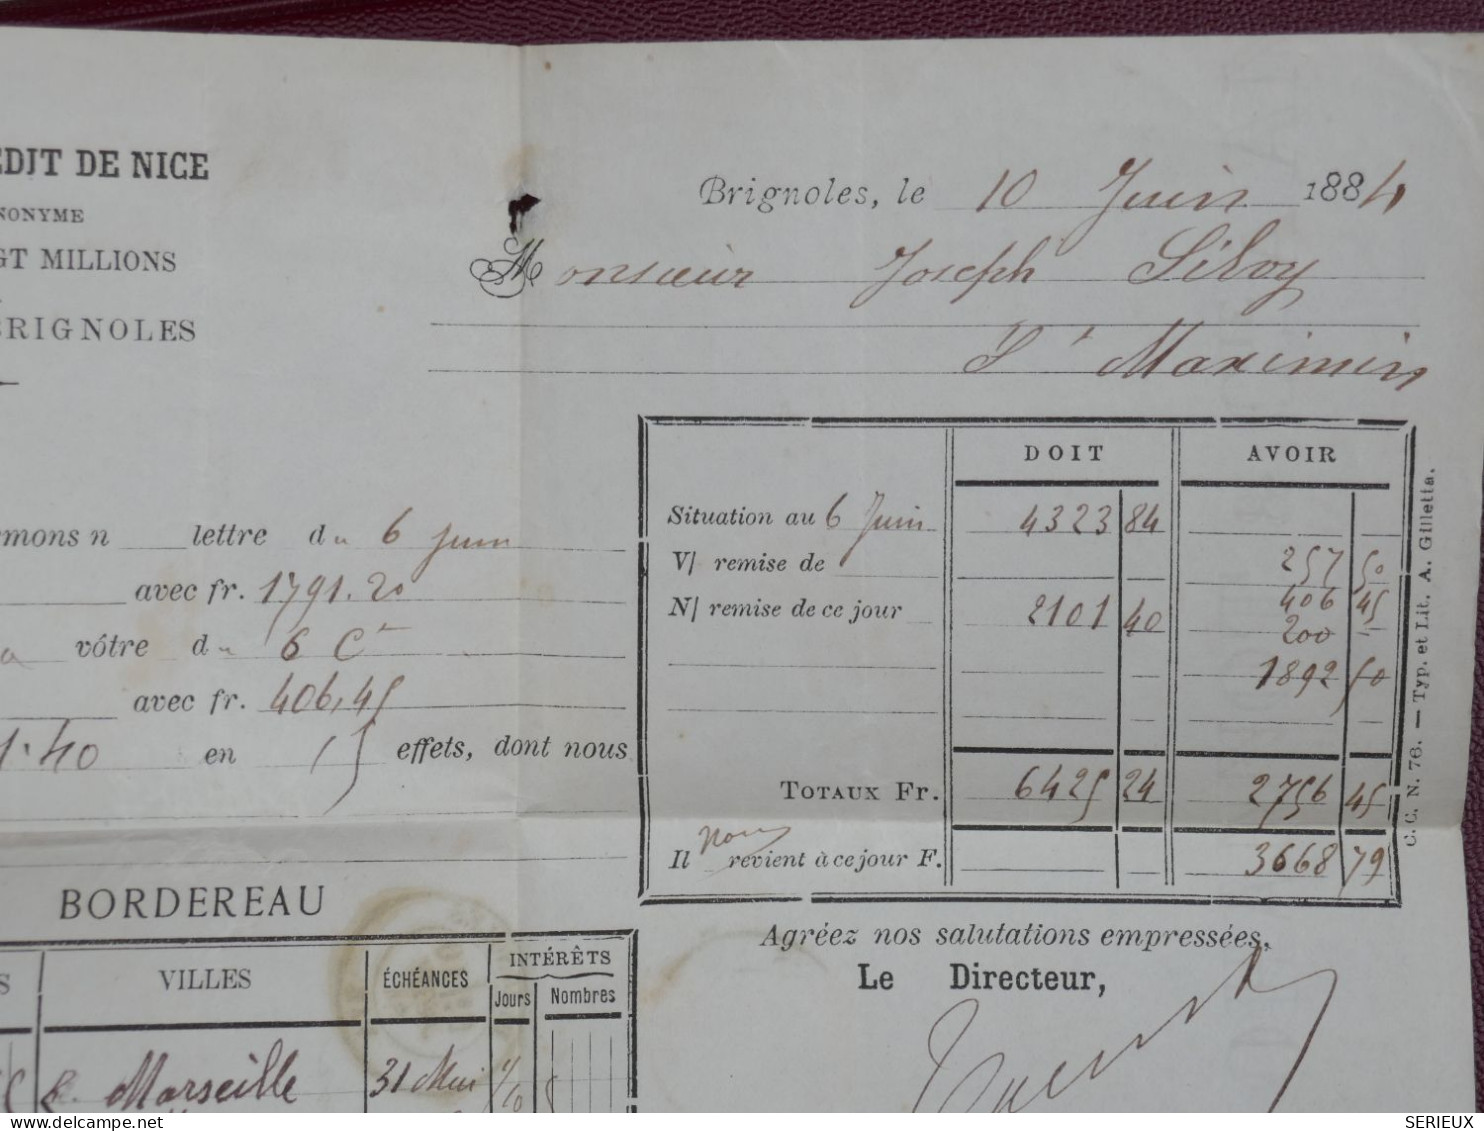 EDIT DE NICE
NONYME
GT MILLIONS
BRIGNOLES
Brignoles, le 10 Juin 1884
Monsieur Joseph
St Maximin
rmons n lettre du 6 Juin
avec fr. 1791.20
vôtre du 6 Ct
avec fr. 406,45
1.40 en 15 effets, dont nous
DOIT AVOIR
Situation au 6 Juin 4323 84
V/ remise de 257 50
406 45
N/ remise de ce jour 2101 40
200 "
1892 50
TOTAUX Fr. 6425 24 2756 45
Il nous revient à ce jour F. 3668 79
C. C. N. 76. — Typ. et Lit. A. Gilletta.
Agréez nos salutations empressées,
Le Directeur,
BORDEREAU
S VILLES ÉCHÉANCES INTÉRÊTS
Jours Nombres
Marseille 31 Mai
SERIEUX